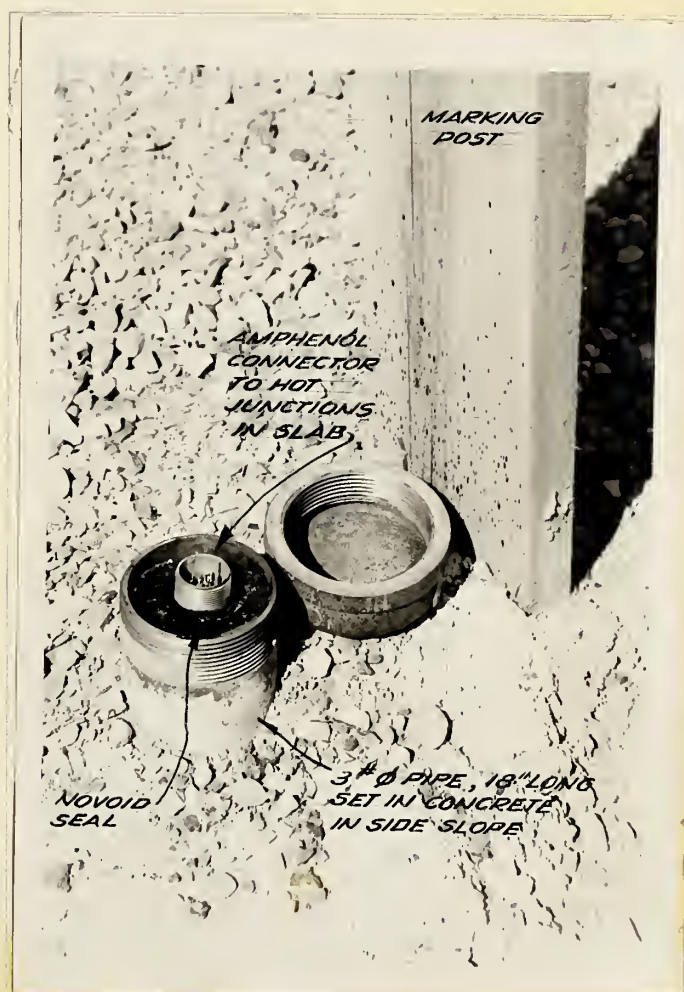 MARKING
POST
AMPHENOL
CONNECTOR
TO HOT
JUNCTIONS
IN SLAB
NOVOID
SEAL
3"Ø PIPE, 18" LONG
SET IN CONCRETE
IN SIDE SLOPE